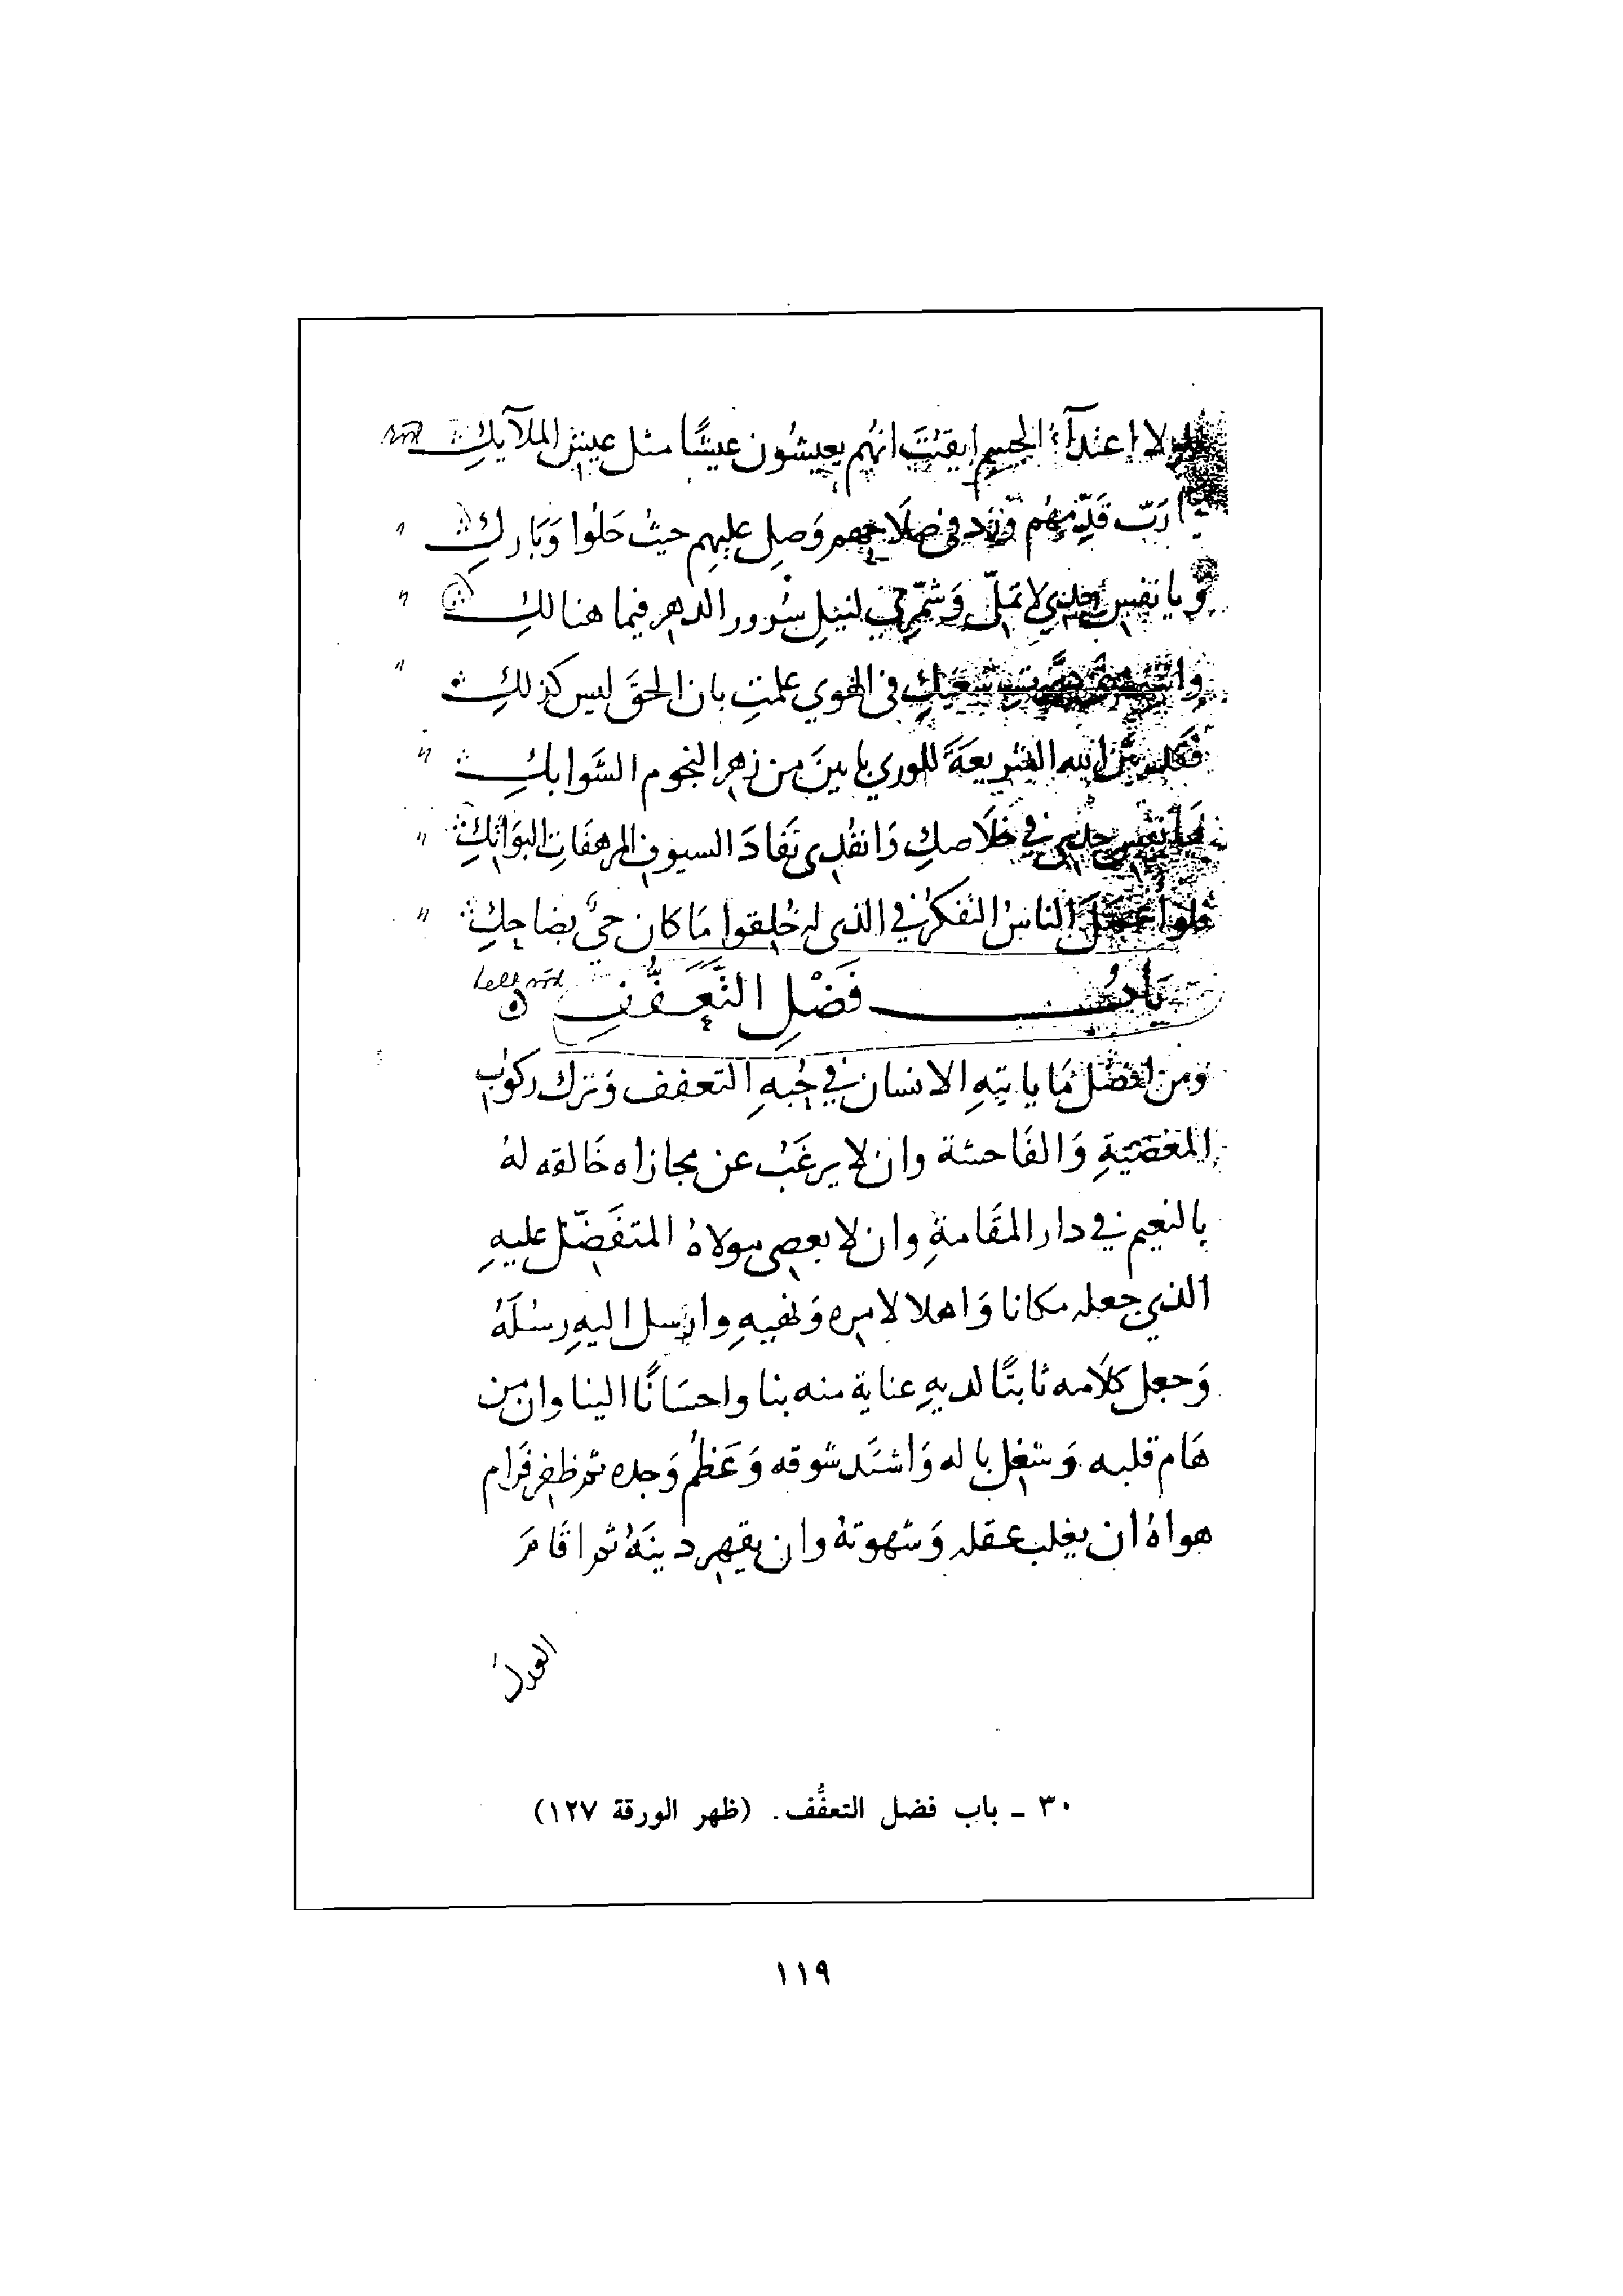 ولولا اعتدآء الجسم ايقنت انهم يعيشون عيشًا مثل عيش الملآيك
رب قدّمهم وزد في صلاحهم وصل عليهم حيث حلوا وبارك
ويا نفس جدي لا تملّ وشمّري لنيل سرور الدهر فيما هنالك
سعيك في الهوي علمتِ بان الحق ليس كذلك
الله الشريعة للوري بابين من زهر النجوم الشوابك
نفس جدي في خلاصك وانفدي نفاد السيوف المرهفات البواتك
فلو اعمل الناس التفكر في الذي له خلقوا ما كان حيّ بضاحك
باب فَضْلِ التَّعَفُّفِ
ومن افضل ما ياتيه الانسان في حُبه التعفف وترك ركوب
المعصية والفاحشة وان لا يرغب عن مجازاه خالقه له
بالنعيم في دار المقامة وان لا يعصي مولاه المتفضّل عليه
الذي جعله مكانا واهلا لامره ونهيه وارسل اليه رسله
وجعل كلامه ثابتًا لديه عناية منه بنا واحسانًا الينا وان من
هام قلبه وشغل باله واشتد شوقه وعظم وجده ثم ظفر فرام
هواه ان يغلب عقله وشهوته وان يقهر دينه ثم اقام
العدل
٣٠ - باب فضل التعفُّف. (ظهر الورقة ١٢٧)
١١٩